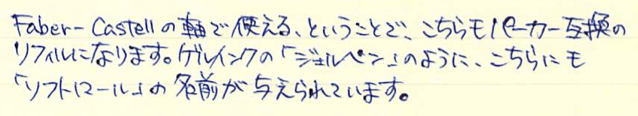 Faber-Castellの軸で使える、ということで、こちらもパーカー互換の
リフィルになります。ゲルインクの「ジェルペン」のように、こちらにも
「ソフトロール」の名前が与えられています。